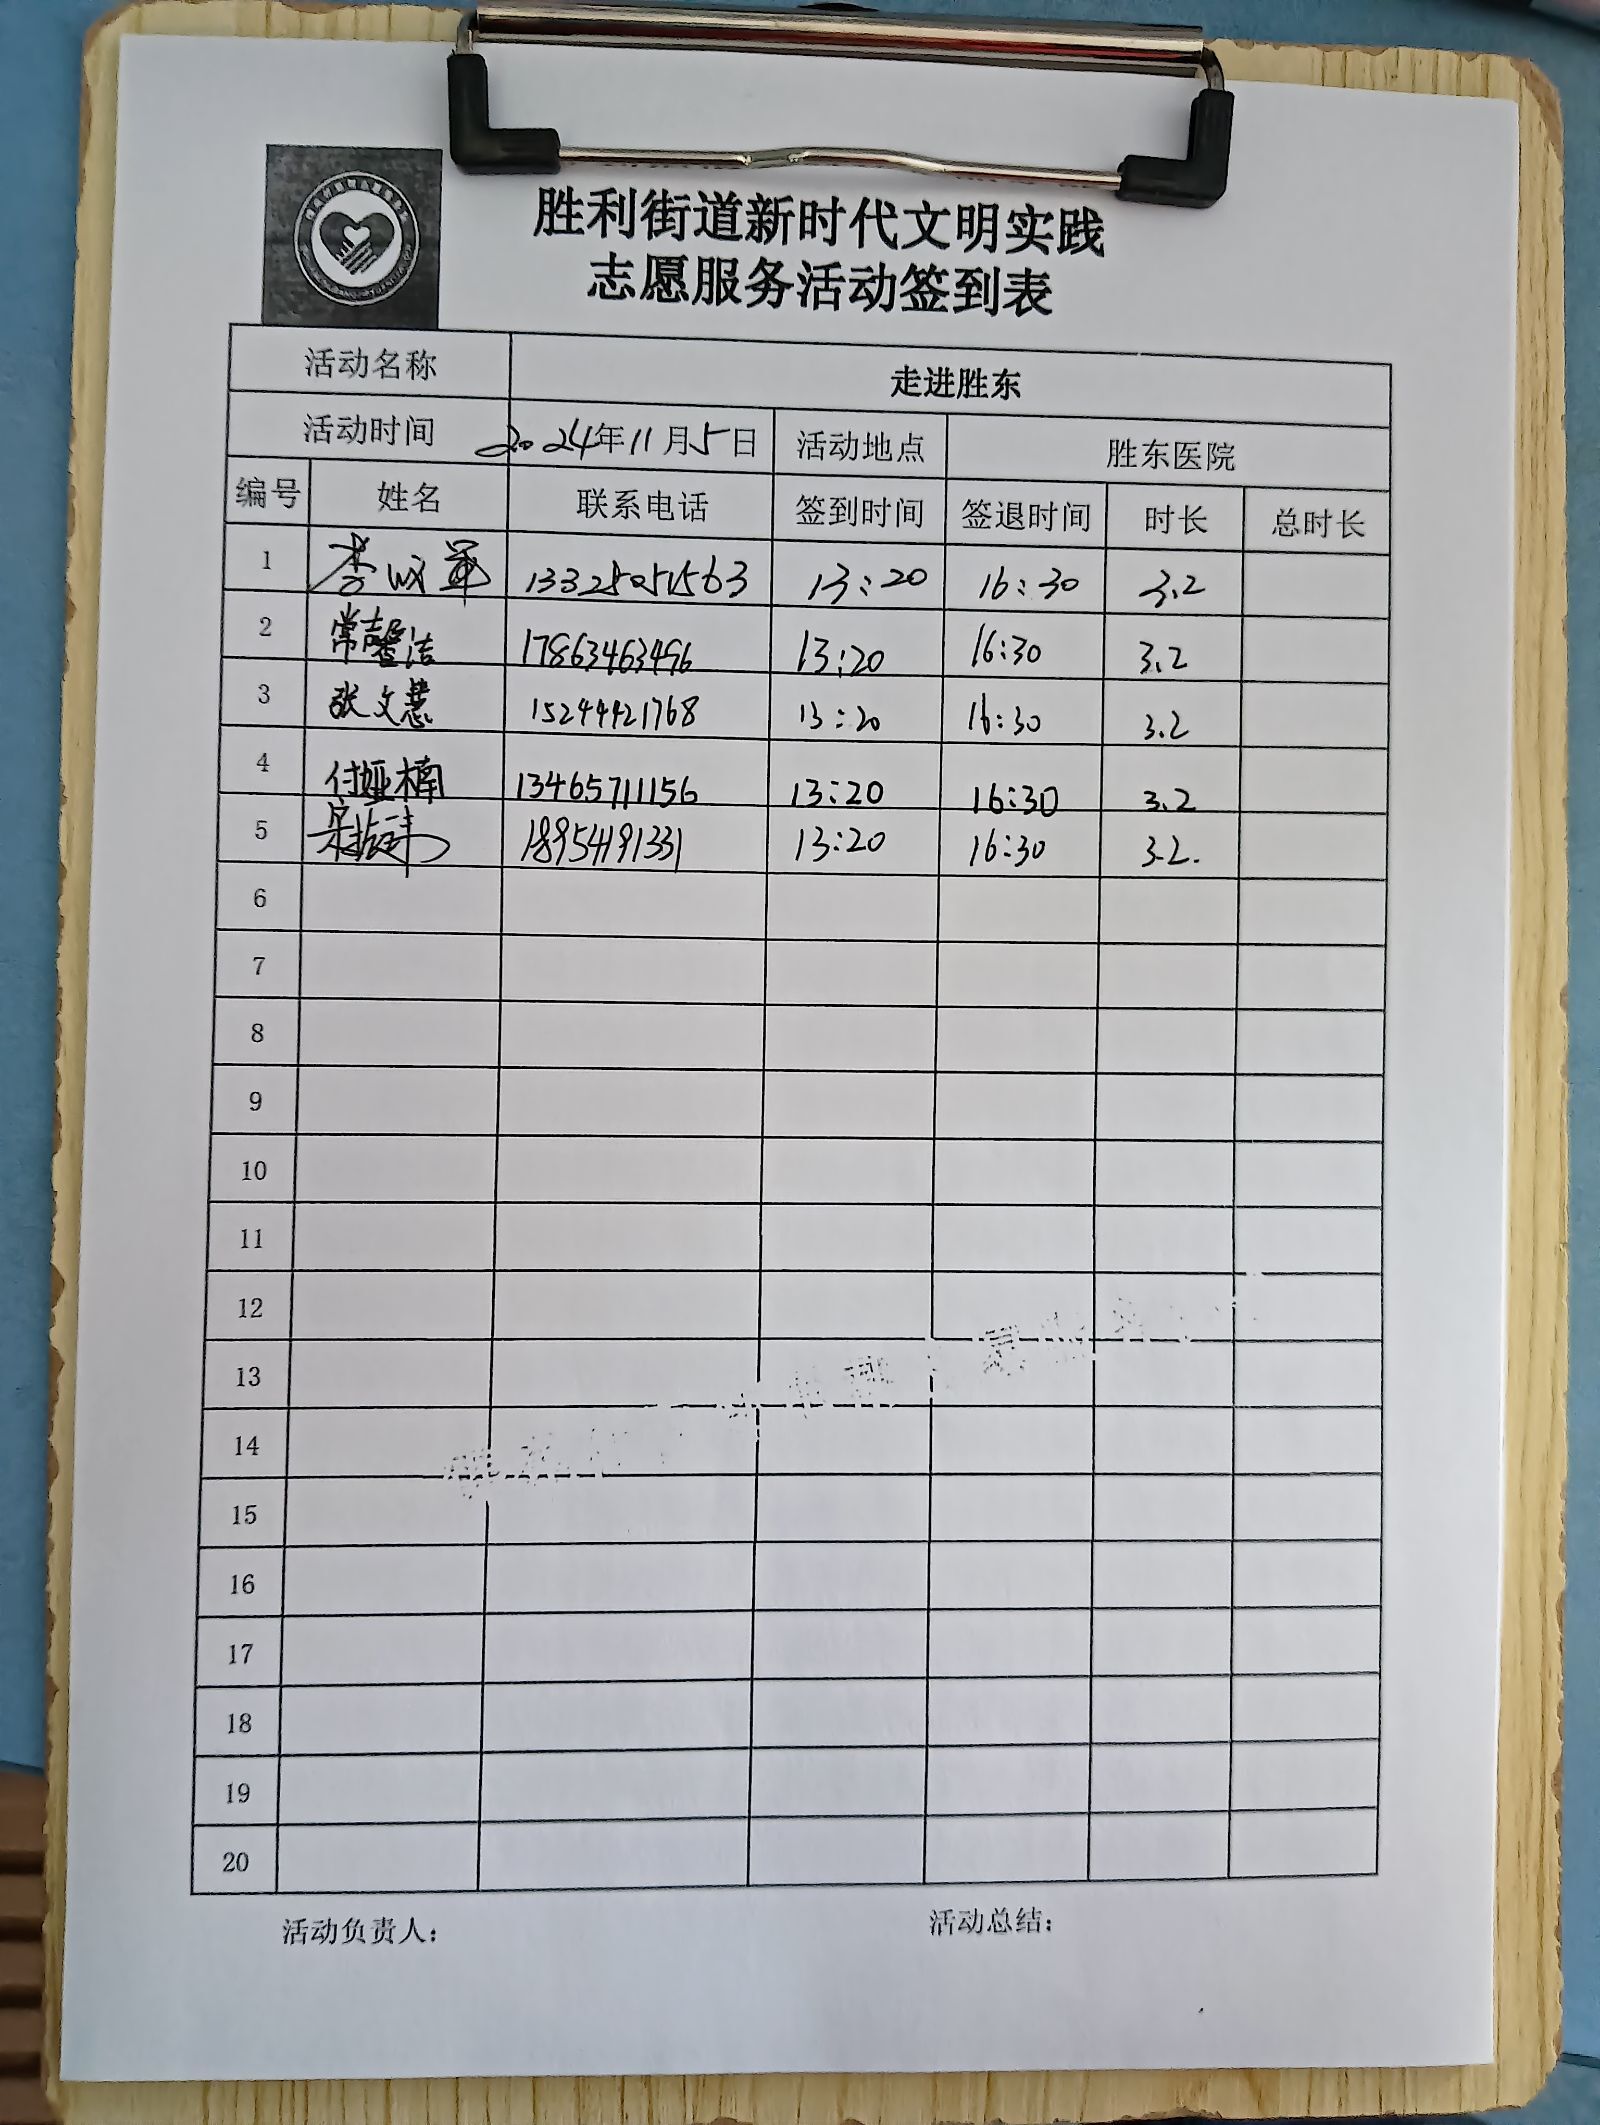 胜利街道新时代文明实践
志愿服务活动签到表
活动名称 走进胜东
活动时间 2024年11月5日 活动地点 胜东医院
编号 姓名 联系电话 签到时间 签退时间 时长 总时长
1 李 13325051563 13:20 16:30 3.2
2 常馨洁 17863463496 13:20 16:30 3.2
3 张文慧 15244421768 13:20 16:30 3.2
4 付娅楠 13465711156 13:20 16:30 3.2
5 宋振 18954191331 13:20 16:30 3.2.
6
7
8
9
10
11
12
13
14
15
16
17
18
19
20
活动负责人: 活动总结: